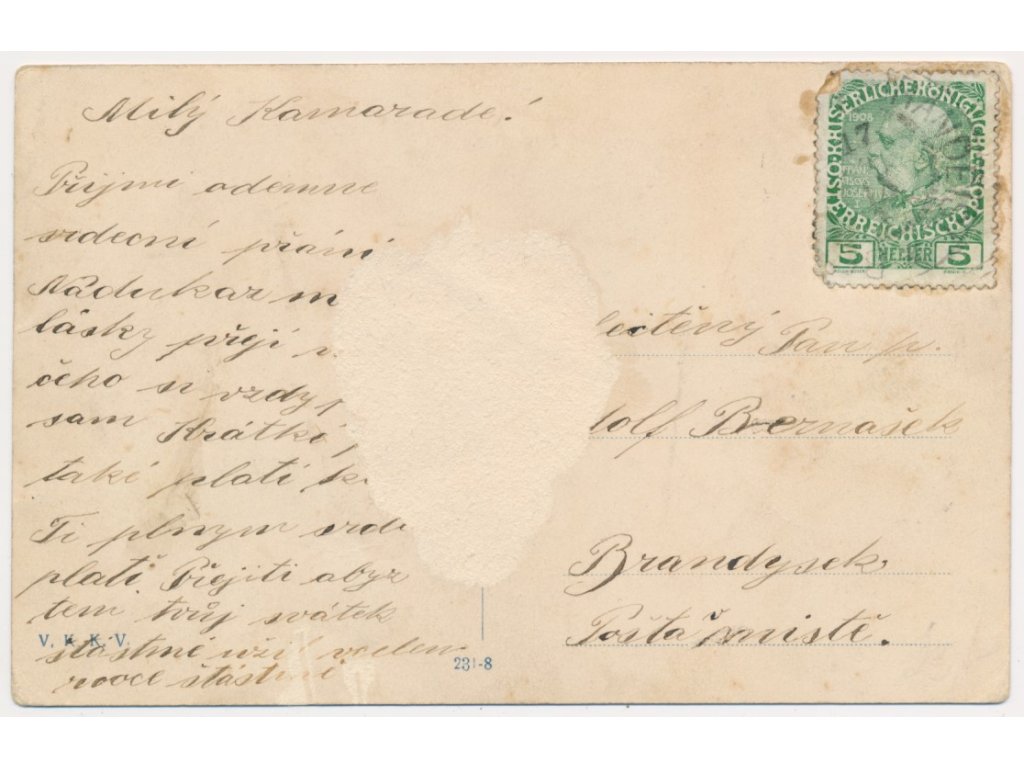 Milý Kamarade!
Přijmi odemne
srdecní přání
Nádukaz m
lásky přeji
čeho si vzdy p
sam Krátki,
taki plati k
Ti plnym srde
plati Přejiti abyz
tem tvůj svátek
stastně užil veden
rooce štástní
V. K. K. V.
231-8
lectěný Pan p.
dolf Bernašek
Brandysek,
Pošta v mistě.
KAISERLICHE KÖNIGLICHE
ÖSTERREICHISCHE POST
1908
17
5 HELLER 5